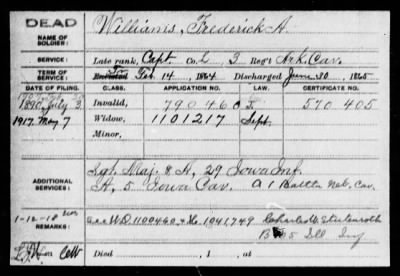 DEAD
NAME OF SOLDIER: Williams, Frederick A.
SERVICE: Late rank, Capt. Co. L, 3 Reg't Ark. Cav.
TERM OF SERVICE: Feb 14, 1864 Discharged June 30, 1865
DATE OF FILING. CLASS. APPLICATION NO. LAW. CERTIFICATE NO.
1890, July 3 Invalid, 790460 570405
1917, May 7 Widow, 1101217 Sept.
Minor,
ADDITIONAL SERVICES: Sgt Maj. & A, 29 Iowa Inf.
A, 5 Iowa Cav. 1 Battln Neb. Cav.
1-12-18
REMARKS: WO 1100460 1041749
B 5 Ill Inf
Died , 1 , at